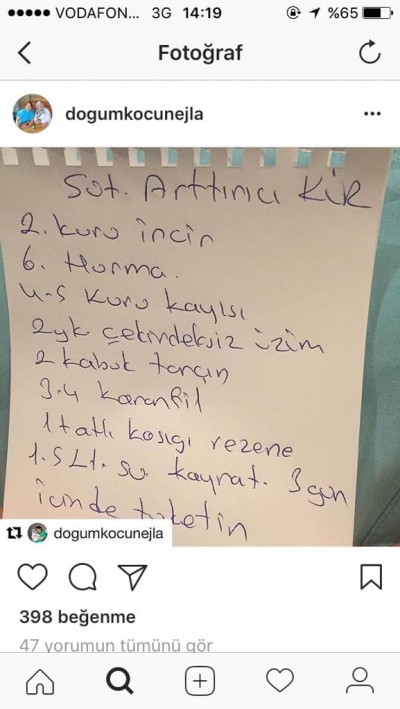 VODAFON... 3G 14:19 %65
Fotoğraf
dogumkocunejla
Süt. Arttırıcı KÜR
2. kuru incir
6. Hurma.
4-5 Kuru kayısı
2yk çekirdeksiz üzüm
2 kabuk tarçın
3-4 karanfil
1 tatlı kaşığı rezene
1.5 Lt. su kaynat. 3 gün
içinde tüketin
dogumkocunejla
398 beğenme
47 yorumun tümünü gör